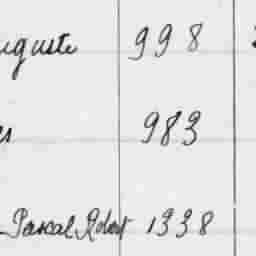 uguste 998
983
Pascal Robert 1338